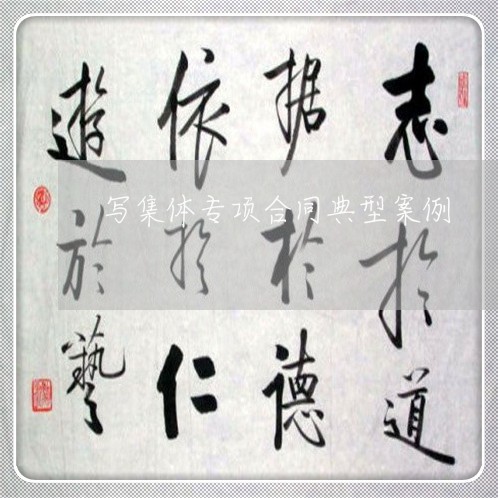 志於道
据於德
依於仁
遊於藝
写集体专项合同典型案例